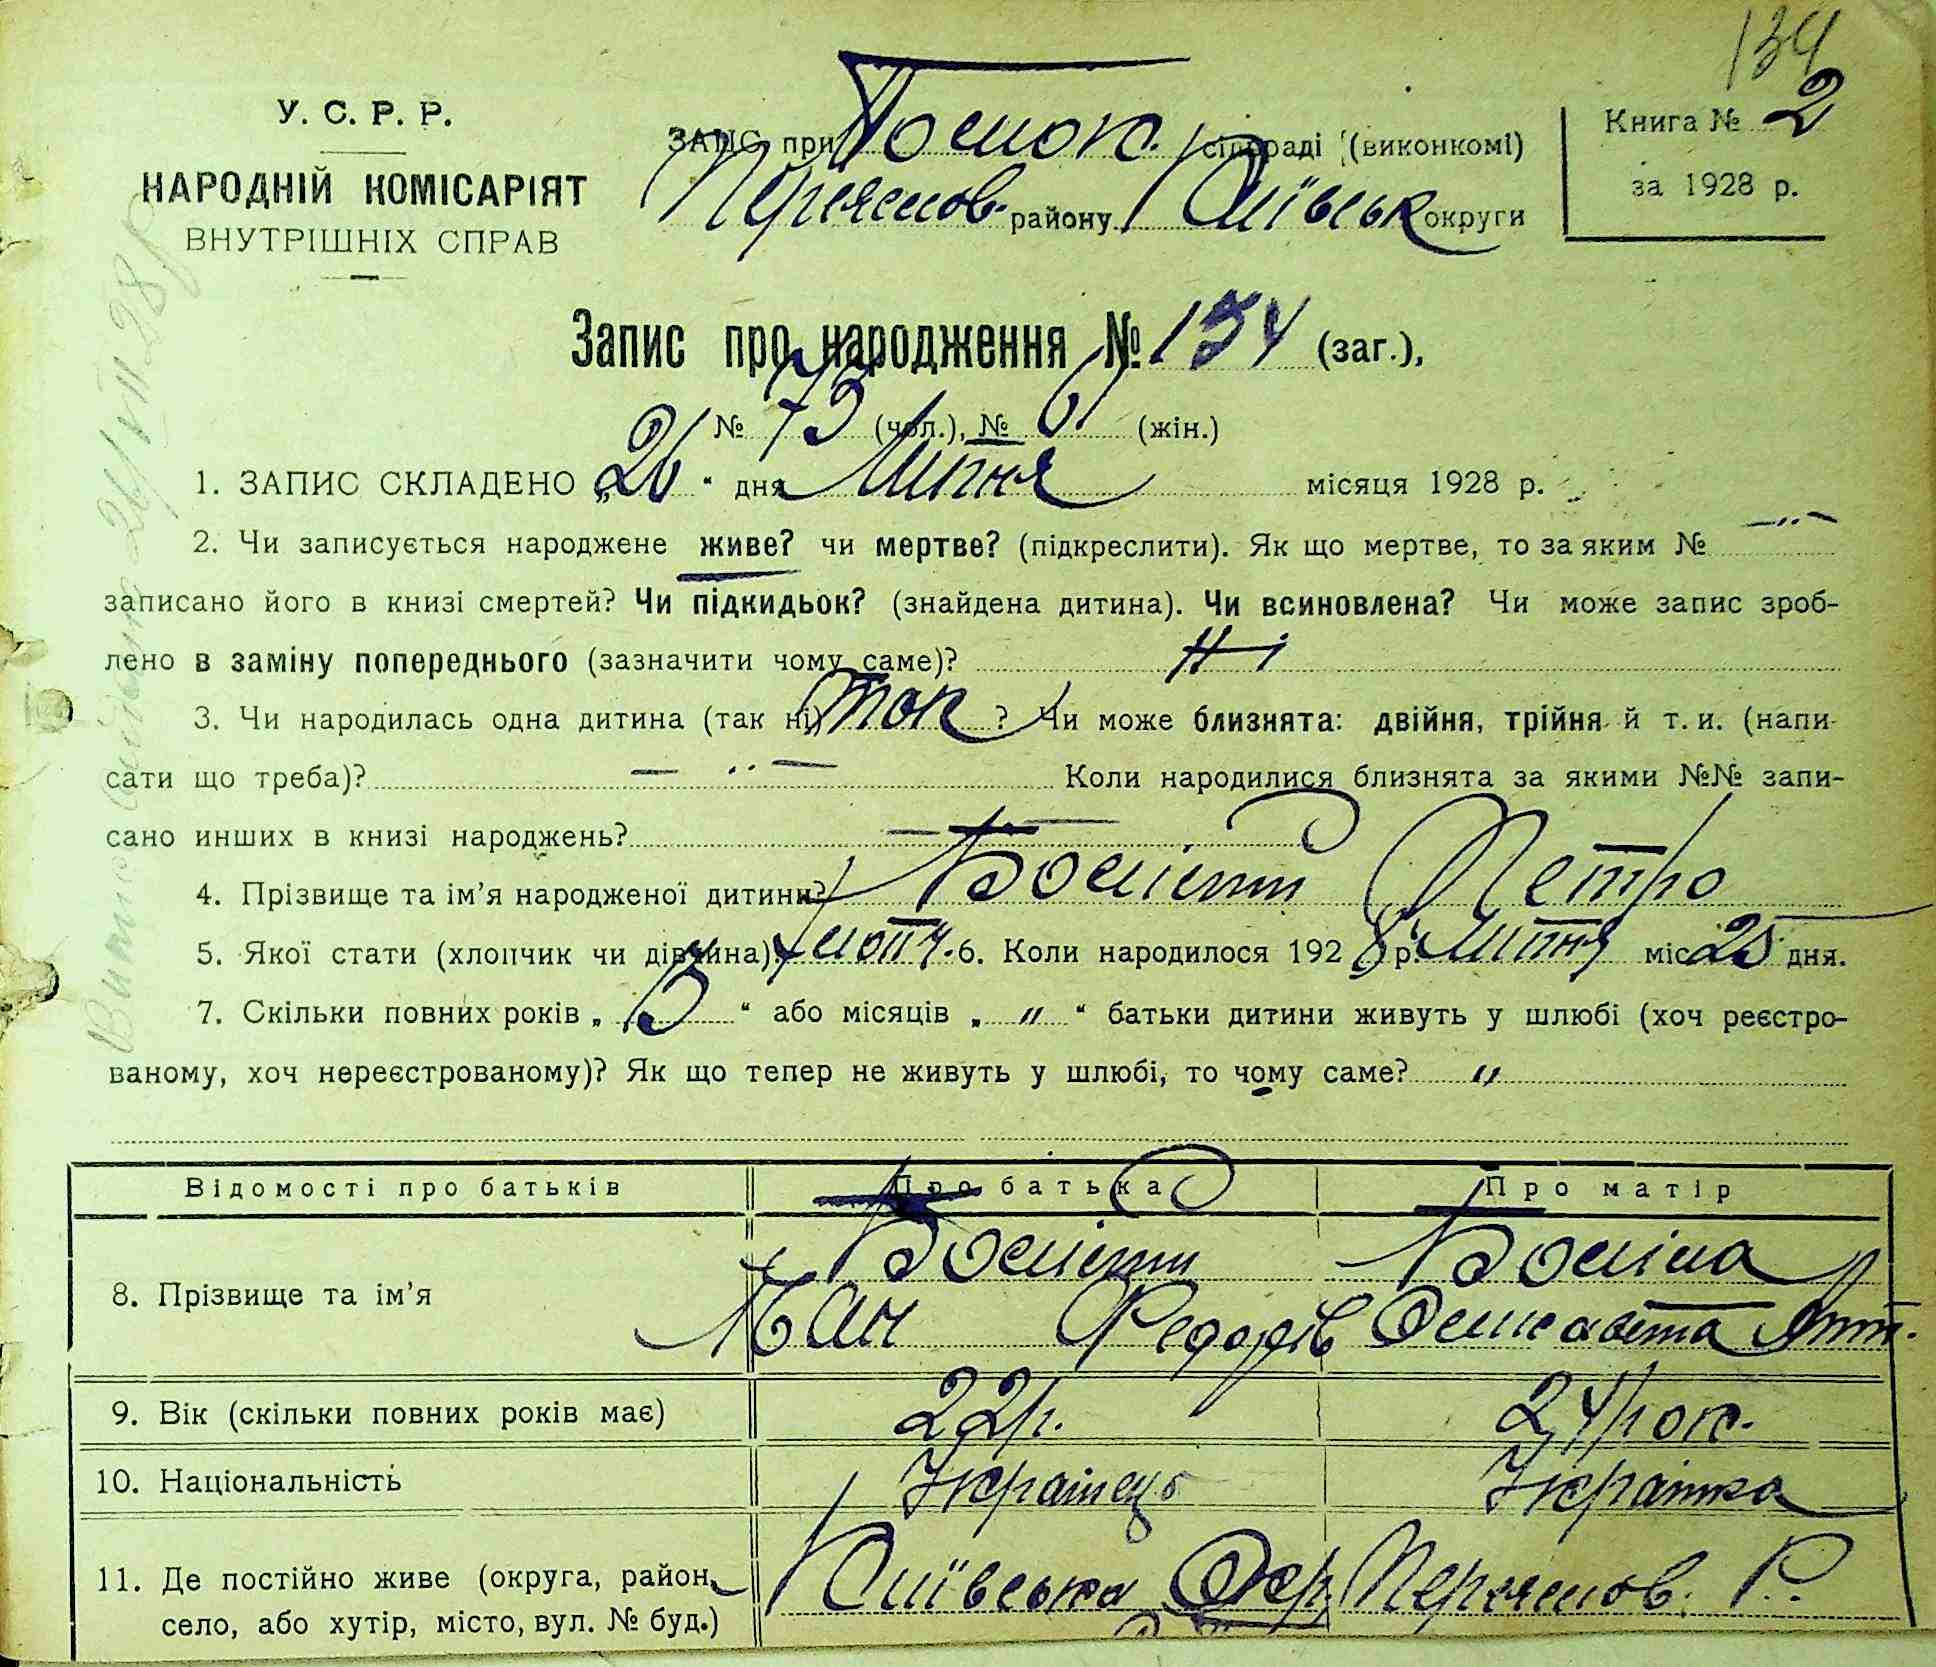 134
У. С. Р. Р.
НАРОДНІЙ КОМІСАРІЯТ
ВНУТРІШНІХ СПРАВ
ЗАГС при сільраді (виконкомі)
Переяслов. району Київськ округи
Книга № 2
за 1928 р.
Запис про народження № 134 (заг.),
№ 73 (чол.), № (жін.)
1. ЗАПИС СКЛАДЕНО „26“ дня Липня місяця 1928 р.
2. Чи записується народжене живе? чи мертве? (підкреслити). Як що мертве, то за яким № –"–
записано його в книзі смертей? Чи підкидьок? (знайдена дитина). Чи всиновлена? Чи може запис зроб-
лено в заміну попереднього (зазначити чому саме)? Ні
3. Чи народилась одна дитина (так ні) так? Чи може близнята: двійня, трійня й т. и. (напи-
сати що треба)? –"– Коли народилися близнята за якими №№ запи-
сано инших в книзі народжень? –"–
4. Прізвище та ім’я народженої дитини? Петро
5. Якої стати (хлопчик чи дівчина) хлопч. 6. Коли народилося 1928 р. липня міс 25 дня.
7. Скільки повних років „3“ або місяців „ " “ батьки дитини живуть у шлюбі (хоч реєстро-
ваному, хоч нереєстрованому)? Як що тепер не живуть у шлюбі, то чому саме? "
Відомості про батьків Про батька Про матір
8. Прізвище та ім’я
Іван Федорів Єлисавета
9. Вік (скільки повних років має) 22 р. 24 рок.
10. Національність Українець Українка
11. Де постійно живе (округа, район, Київська Окр. Переяслов. Р.
село, або хутір, місто, вул. № буд.)